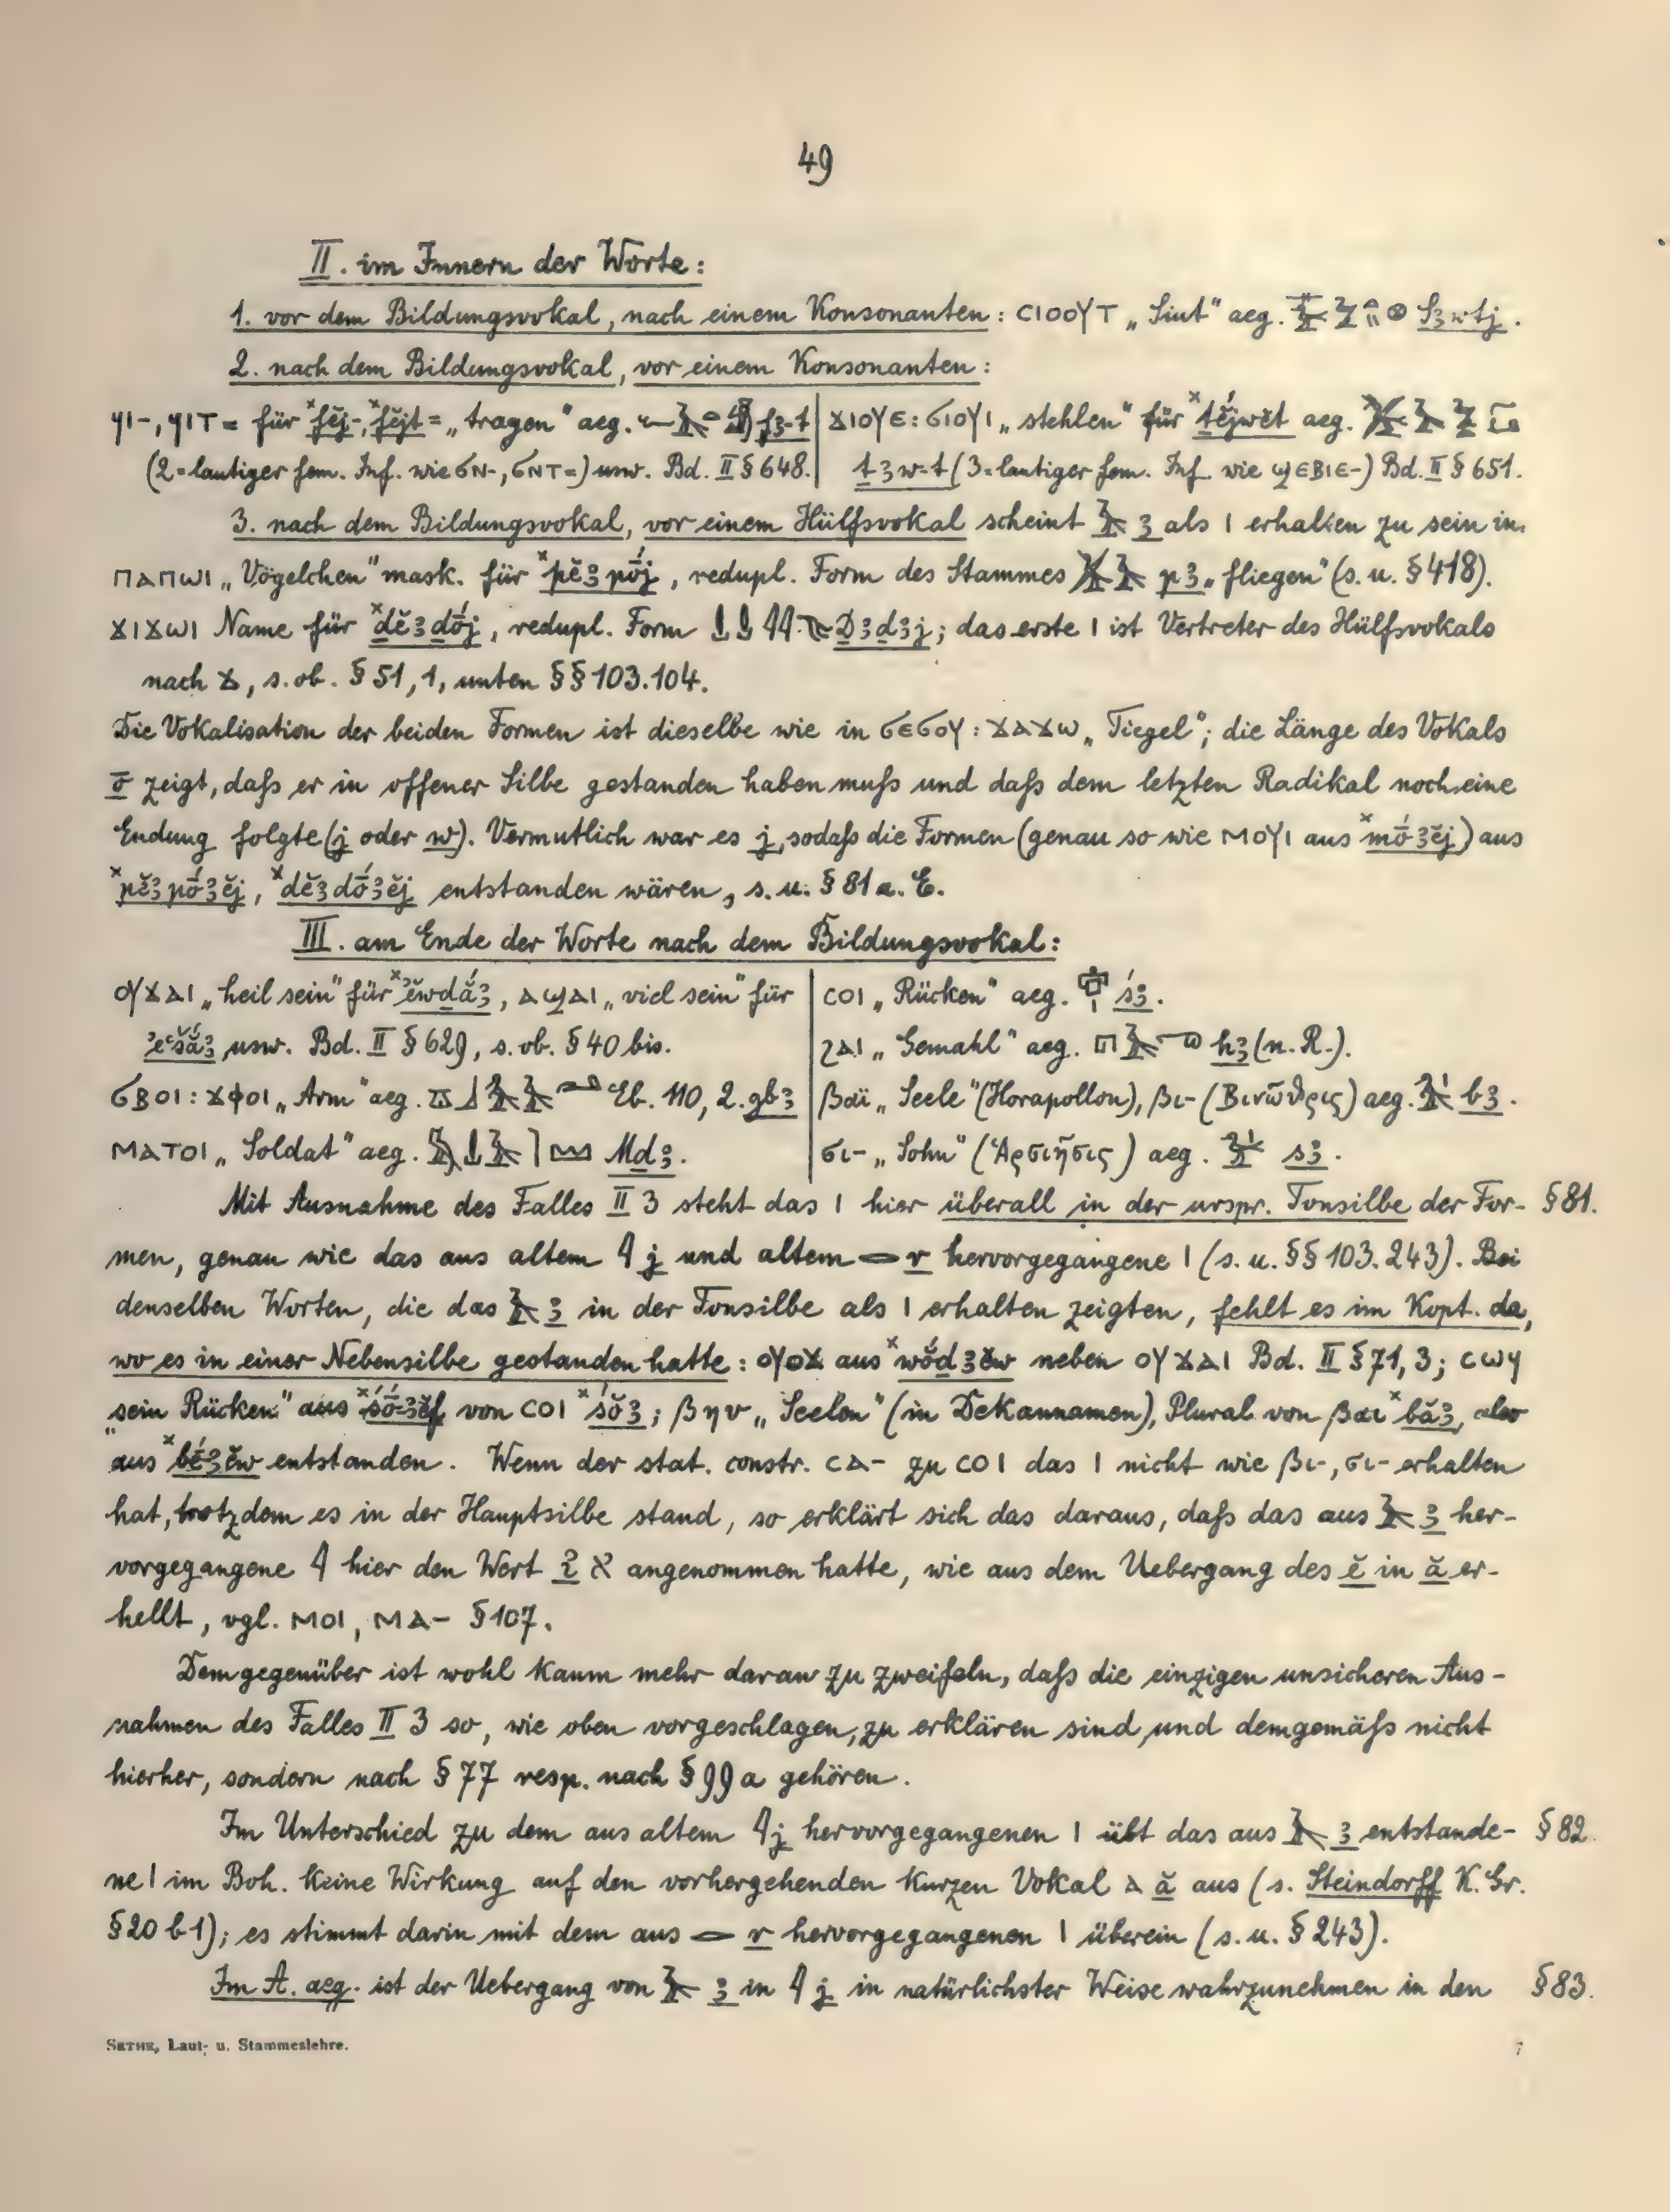 49
II. im Innern der Worte:
1. vor dem Bildungsvokal, nach einem Konsonanten: ⲥⲓⲟⲟⲩⲧ „Siut" aeg. Sꜣwtj.
2. nach dem Bildungsvokal, vor einem Konsonanten:
ϥⲓ-, ϥⲓⲧ= für ˣfĕj-, ˣfĕjt= „tragen" aeg. fꜣ-t
(2=lautiger fem. Inf. wie ϭⲛ-, ϭⲛⲧ=) usw. Bd. II § 648.
ϫⲓⲟⲩⲉ: ϭⲓⲟⲩⲓ „stehlen" für ˣṯĕ́jwĕt aeg.
ṯꜣw-t (3=lautiger fem. Inf. wie ϣⲉⲃⲓⲉ-) Bd. II § 651.
3. nach dem Bildungsvokal, vor einem Hülfsvokal scheint 𓄿 ꜣ als ⲓ erhalten zu sein in
ⲡⲁⲡⲱⲓ „Vögelchen" mask. für ˣpĕꜣpṓj, redupl. Form des Stammes pꜣ „fliegen" (s. u. § 418).
ϫⲓϫⲱⲓ Name für ˣḏĕꜣḏṓj, redupl. Form Ḏꜣḏꜣj; das erste ⲓ ist Vertreter des Hülfsvokals
nach ϫ, s. ob. § 51, 1, unten §§ 103. 104.
Die Vokalisation der beiden Formen ist dieselbe wie in ϭⲉϭⲟⲩ: ϫⲁϫⲱ „Tiegel"; die Länge des Vokals
ō zeigt, daſs er in offener Silbe gestanden haben muſs und daſs dem letzten Radikal noch eine
Endung folgte (j oder w). Vermutlich war es j, sodaſs die Formen (genau so wie ⲙⲟⲩⲓ aus ˣmṓꜣĕj) aus
ˣpĕꜣpṓꜣĕj, ˣḏĕꜣḏṓꜣĕj entstanden wären, s. u. § 81 a. E.
III. am Ende der Worte nach dem Bildungsvokal:
ⲟⲩϫⲁⲓ „heil sein" für ˣʾĕwḏắꜣ, ⲁϣⲁⲓ „viel sein" für
ʾĕʿšắꜣ usw. Bd. II § 629, s. ob. § 40 bis.
ϭⲃⲟⲓ: ϫⲫⲟⲓ „Arm" aeg. Eb. 110, 2. gbꜣ
ⲙⲁⲧⲟⲓ „Soldat" aeg. Mḏꜣ.
ⲥⲟⲓ „Rücken" aeg. śꜣ.
ϩⲁⲓ „Gemahl" aeg. hꜣ (n. R.).
βαϊ „Seele" (Horapollon), βι- (Βινῶϑρις) aeg. bꜣ.
σι- „Sohn" (Ἁρσιῆσις) aeg. sꜣ.
Mit Ausnahme des Falles II 3 steht das ⲓ hier überall in der urspr. Tonsilbe der For- § 81.
men, genau wie das aus altem 𓇋 j und altem 𓂋 r hervorgegangene ⲓ (s. u. §§ 103. 243). Bei
denselben Worten, die das 𓄿 ꜣ in der Tonsilbe als ⲓ erhalten zeigten, fehlt es im Kopt. da,
wo es in einer Nebensilbe gestanden hatte: ⲟⲩⲟϫ aus ˣwŏ́ḏꜣĕw neben ⲟⲩϫⲁⲓ Bd. II § 71, 3; ⲥⲱϥ
„sein Rücken" aus ˣśṓ-ꜣĕf von ⲥⲟⲓ ˣśŏꜣ; βην „Seelen" (in Dekannamen), Plural von βαι ˣbăꜣ, also
aus ˣbḗꜣĕw entstanden. Wenn der stat. constr. ⲥⲁ- zu ⲥⲟⲓ das ⲓ nicht wie βι-, σι- erhalten
hat, trotzdem es in der Hauptsilbe stand, so erklärt sich das daraus, daſs das aus 𓄿 ꜣ her-
vorgegangene 𓇋 hier den Wert ʾ א angenommen hatte, wie aus dem Uebergang des ĕ in ă er-
hellt, vgl. ⲙⲟⲓ, ⲙⲁ- § 107.
Demgegenüber ist wohl kaum mehr daran zu zweifeln, daſs die einzigen unsicheren Aus-
nahmen des Falles II 3 so, wie oben vorgeschlagen, zu erklären sind und demgemäſs nicht
hierher, sondern nach § 77 resp. nach § 99a gehören.
Im Unterschied zu dem aus altem 𓇋 j hervorgegangenen ⲓ übt das aus 𓄿 ꜣ entstande- § 82.
ne ⲓ im Boh. keine Wirkung auf den vorhergehenden kurzen Vokal ⲁ ă aus (s. Steindorff K. Gr.
§ 20 b 1); es stimmt darin mit dem aus 𓂋 r hervorgegangenen ⲓ überein (s. u. § 243).
Im A. aeg. ist der Uebergang von 𓄿 ꜣ in 𓇋 j in natürlichster Weise wahrzunehmen in den § 83.
SETHE, Laut- u. Stammeslehre. 7